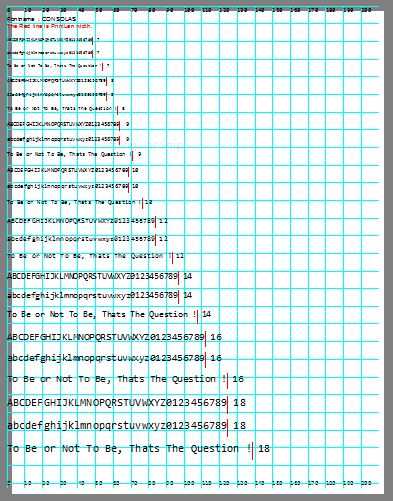 0 10 20 30 40 50 60 70 80 90 100 110 120 130 140 150 160 170 180 190 200
Fontname : CONSOLAS
The Red line is PrintLen width.
ABCDEFGHIJKLMNOPQRSTUVWXYZ0123456789 7
abcdefghijklmnopqrstuvwxyz0123456789 7
To Be or Not To Be, Thats The Question ! 7
ABCDEFGHIJKLMNOPQRSTUVWXYZ0123456789 8
abcdefghijklmnopqrstuvwxyz0123456789 8
To Be or Not To Be, Thats The Question ! 8
ABCDEFGHIJKLMNOPQRSTUVWXYZ0123456789 9
abcdefghijklmnopqrstuvwxyz0123456789 9
To Be or Not To Be, Thats The Question ! 9
ABCDEFGHIJKLMNOPQRSTUVWXYZ0123456789 10
abcdefghijklmnopqrstuvwxyz0123456789 10
To Be or Not To Be, Thats The Question ! 10
ABCDEFGHIJKLMNOPQRSTUVWXYZ0123456789 12
abcdefghijklmnopqrstuvwxyz0123456789 12
To Be or Not To Be, Thats The Question ! 12
ABCDEFGHIJKLMNOPQRSTUVWXYZ0123456789 14
abcdefghijklmnopqrstuvwxyz0123456789 14
To Be or Not To Be, Thats The Question ! 14
ABCDEFGHIJKLMNOPQRSTUVWXYZ0123456789 16
abcdefghijklmnopqrstuvwxyz0123456789 16
To Be or Not To Be, Thats The Question ! 16
ABCDEFGHIJKLMNOPQRSTUVWXYZ0123456789 18
abcdefghijklmnopqrstuvwxyz0123456789 18
To Be or Not To Be, Thats The Question ! 18
0 10 20 30 40 50 60 70 80 90 100 110 120 130 140 150 160 170 180 190 200